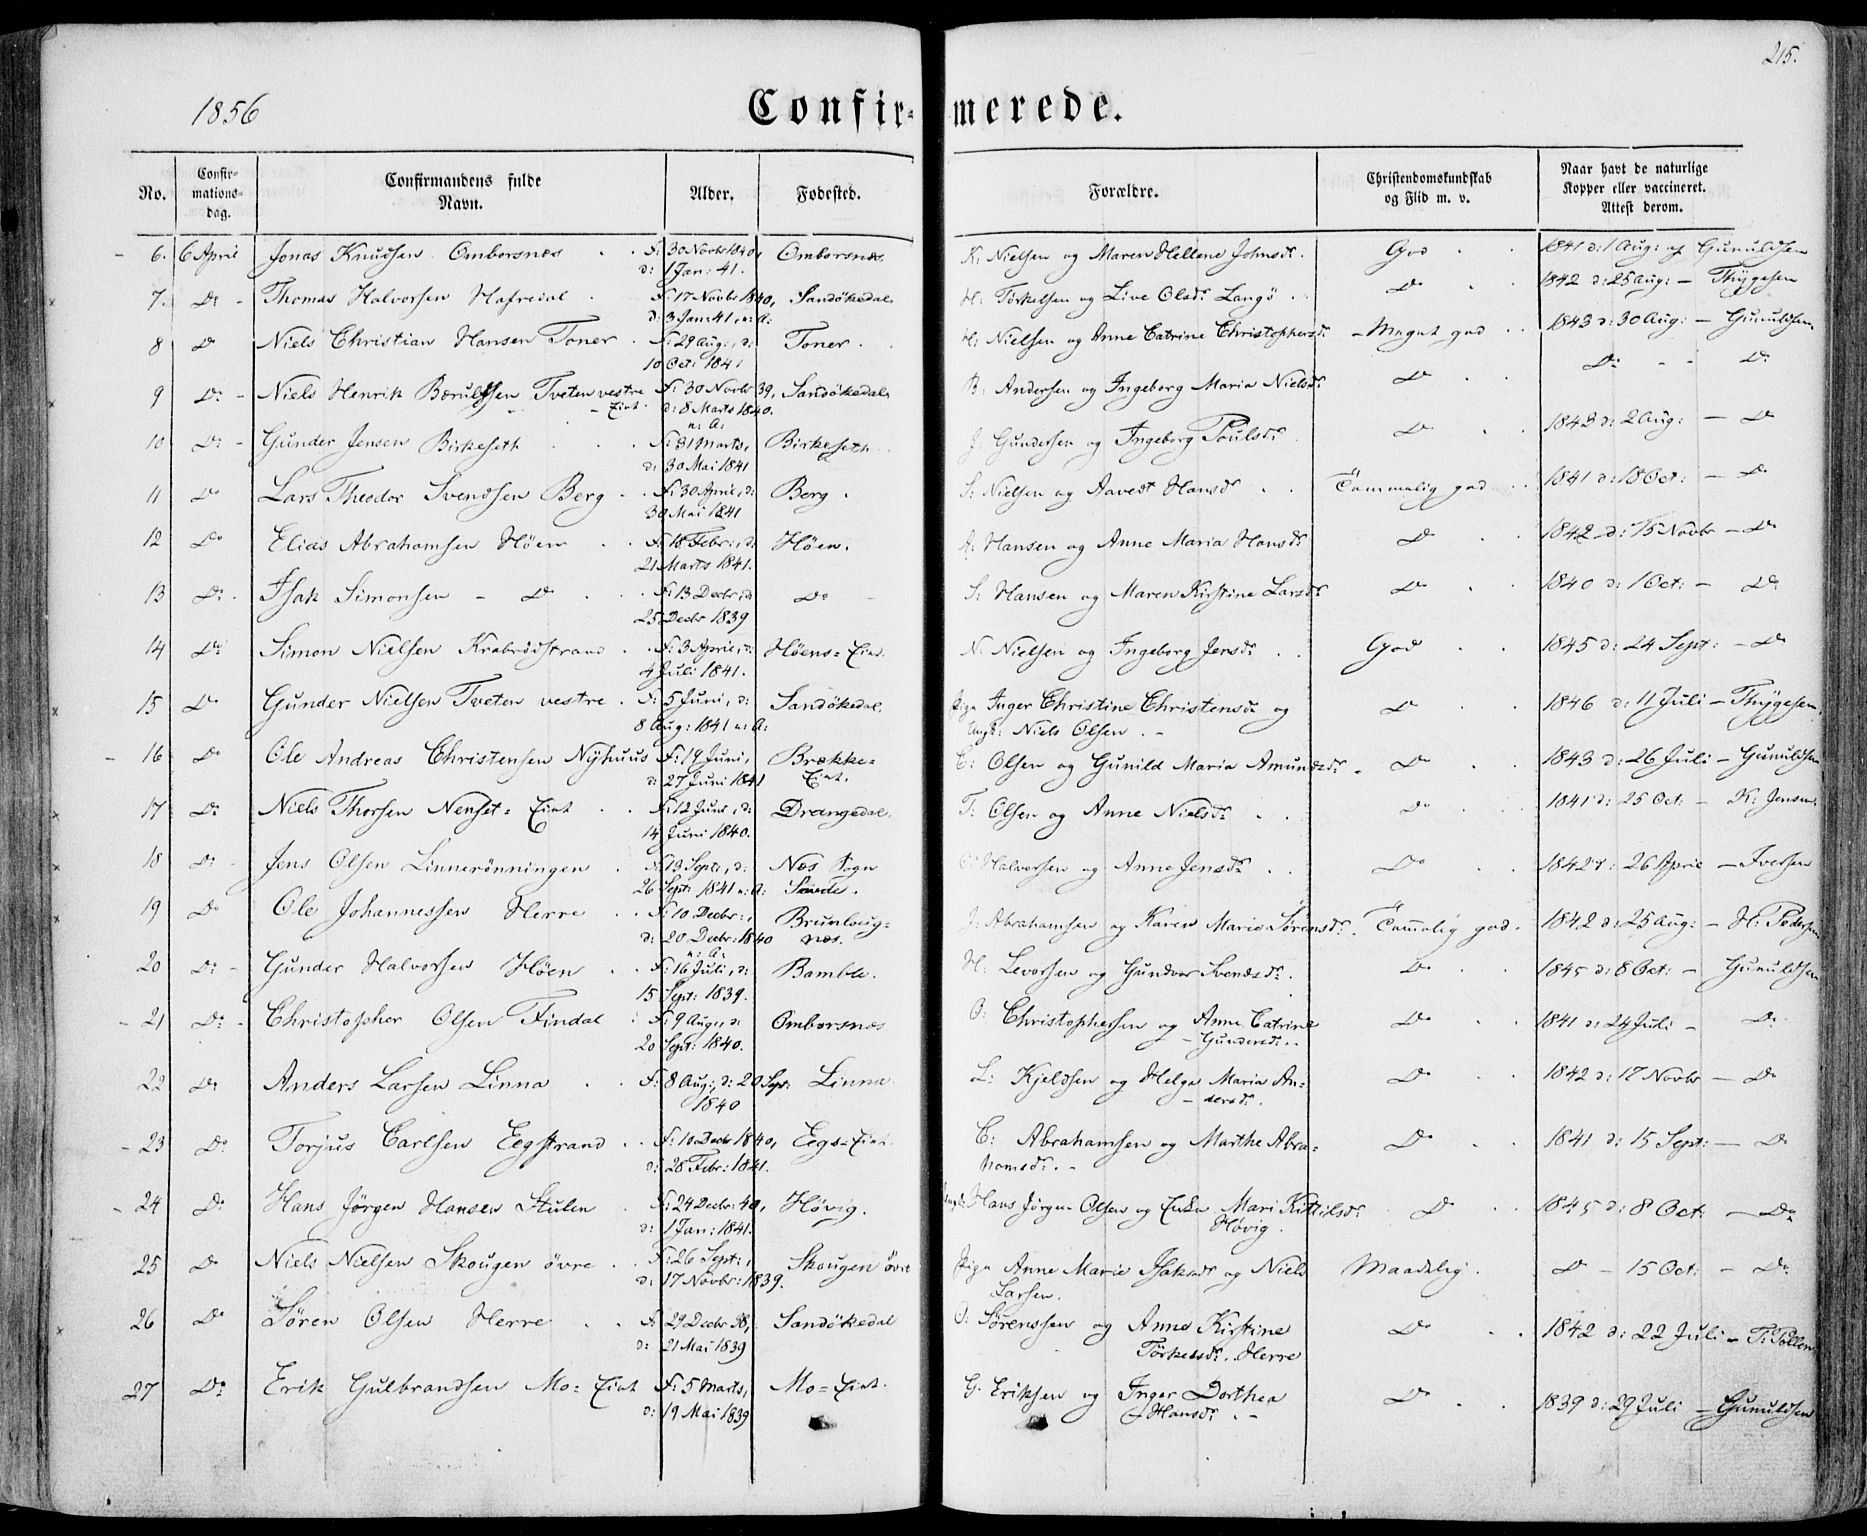 215.
1856
Confir- merede.
No. Confir-mations-dag. Confirmandens fulde Navn. Alder. Fødested. Forældre. Christendomskundskab og Flid m. v. Naar havt de naturlige Kopper eller vaccineret. Attest derom.
6. 6 April Jonas Knudsen Omborsnæs F: 30 Novbr 1840, Omborsnæs K: Nielsen og Maren Hellene Johnsdr. God 1841 d: 1 Aug: af Gunuldsen
d: 1 Jan: 41.
7. Do Thomas Halvorsen Hafredal F: 17 Novbr 1840, Sandökedal H: Törkelsen og Live Olsdr Langö Do 1842 d: 25 Aug: — Thygesen
d: 3 Jan: 41, n: A:
8 Do Niels Christian Hansen Toner F: 29 Aug: d: Toner H: Nielsen og Anne Catrine Christophersdr Meget god 1843 d: 30 Aug: — Gunuldsen
10 Oct: 1841
9 Do Niels Henrik Tveten vestre F: 30 Novbr 39, Sandökedal B: Andersen og Ingeborg Maria Nielsdr Do Do Do
Eiet d: 8 Marts 1840.
n: A:
10 Do Gunder Jensen Birkeseth F: 31 Marts, Birkeseth J: Gundersen og Ingeborg Poulsdr Do 1843 d: 2 Aug: — Do
d: 30 Mai 1841
11 Do Lars Theodor Svendsen Berg F: 30 April, d: Berg S: Nielsen og Aavest Hansdr Tammelig god 1841 d: 18 Oct: — Do
30 Mai 1841
12 Do Elias Abrahamsen Höen F: 18 Febr:, d: Höen. A: Hansen og Anne Maria Hansdr Do 1842 d: 15 Novbr — Do
21 Marts 1841.
13 Do Isak Simonsen — Do F: 13 Decbr, d: Do S: Hansen og Maren Kirstine Larsdr Do 1840 d: 1 Oct: — Do
25 Decbr 1839
14 Do Simon Nielsen Krabrödstrand F: 3 April, d: Höens-Eiet N: Nielsen og Ingeborg Jensdr God 1845 d: 24 Sept: — Do
4 Juli 1841.
15 Do Gunder Nielsen Tveten vestre F: 5 Juni, d: Sandökedal Pige Inger Christine Christensdr og Do 1846 d: 11 Juli — Thygesen
8 Aug: 1841 n: A: Ungk: Niels Olsen
16 Do Ole Andreas Christensen Nyhuus F: 19 Juni, Brække- C: Olsen og Gunild Maria Amundsdr Do 1843 d: 26 Juli — Gunuldsen
d: 27 Juni 1841 Eiet.
17 Do Niels Thorsen Nenset-Eiet F: 12 Juni, d: Drangedal. T: Olsen og Anne Nielsdr Do 1841 d: 25 Oct: — K: Jensen
14 Juni 1840.
18 Do Jens Olsen Linnerönningen F: 13 Sept:, d: Næs Sogn O: Halvorsen og Anne Jensdr Do 1842 d: 26 April — Iversen
26 Sept: 1841 n: A:
19 Do Ole Johannessen Herre F: 10 Decbr:, Brunloug- J: Abrahamsen og Karen Marie Sörensdr. Tammelig god. 1842 d: 25 Aug: — H: Pedersen
d: 20 Decbr: 1840 næs.
n: A:
20 Do Gunder Halvorsen Höen F: 16 Juli, d: Bamble. H: Levorsen og Gundvor Svendsdr. Do 1845 d: 8 Oct: — Gunuldsen
15 Sept: 1839.
21 Do Christopher Olsen Findal F: 9 Aug:, d: Omborsnæs O: Christophersen og Anne Catrine Do 1841 d: 24 Juli — Do
20 Sept: 1840. Gundersdr.
22 Do Anders Larsen Linna F: 8 Aug:, d: 20 Sept: Linna L: Kjeldsen og Helge Maria An- Do 1842 d: 17 Novbr — Do
1840 dersdr.
23 Do Torjus Carlsen Eegstrand F: 10 Decbr 1840, Eegs-Eiet C: Abrahamsen og Marthe Abra- Do 1841 d: 15 Sept: — Do
d: 28 Febr: 1841. hamsdr.
24 Do Hans Jörgen Hansen Stulen F: 24 Decbr: 40, Hövig. Hans Jörgen Olsen og Enke Mari Kittilsdr Do 1845 d: 8 Oct: — Do
d: 1 Jan: 1841. Hövig.
25 Do Niels Nielsen Skougen övre F: 26 Sept:, Skougen övre Pige Anne Marie Isaksdr og Niels Maadelig. Do — 15 Oct: — Do
d: 17 Novbr: 1839. Larsen.
26 Do Sören Olsen Herre F: 29 Decbr 38, Sandökedal O: Sörenssen og Anne Kirstine Do 1842 d: 22 Juli — T:
d: 21 Mai 1839 Törkelsdr. Herre
27 Do Erik Gulbrandsen Mo-Eiet F: 5 Marts, Mo-Eiet. G: Eriksen og Inger Dorthea Do 1839 d: 29 Juli — Gunuldsen
d: 19 Mai 1839 Hansdr.